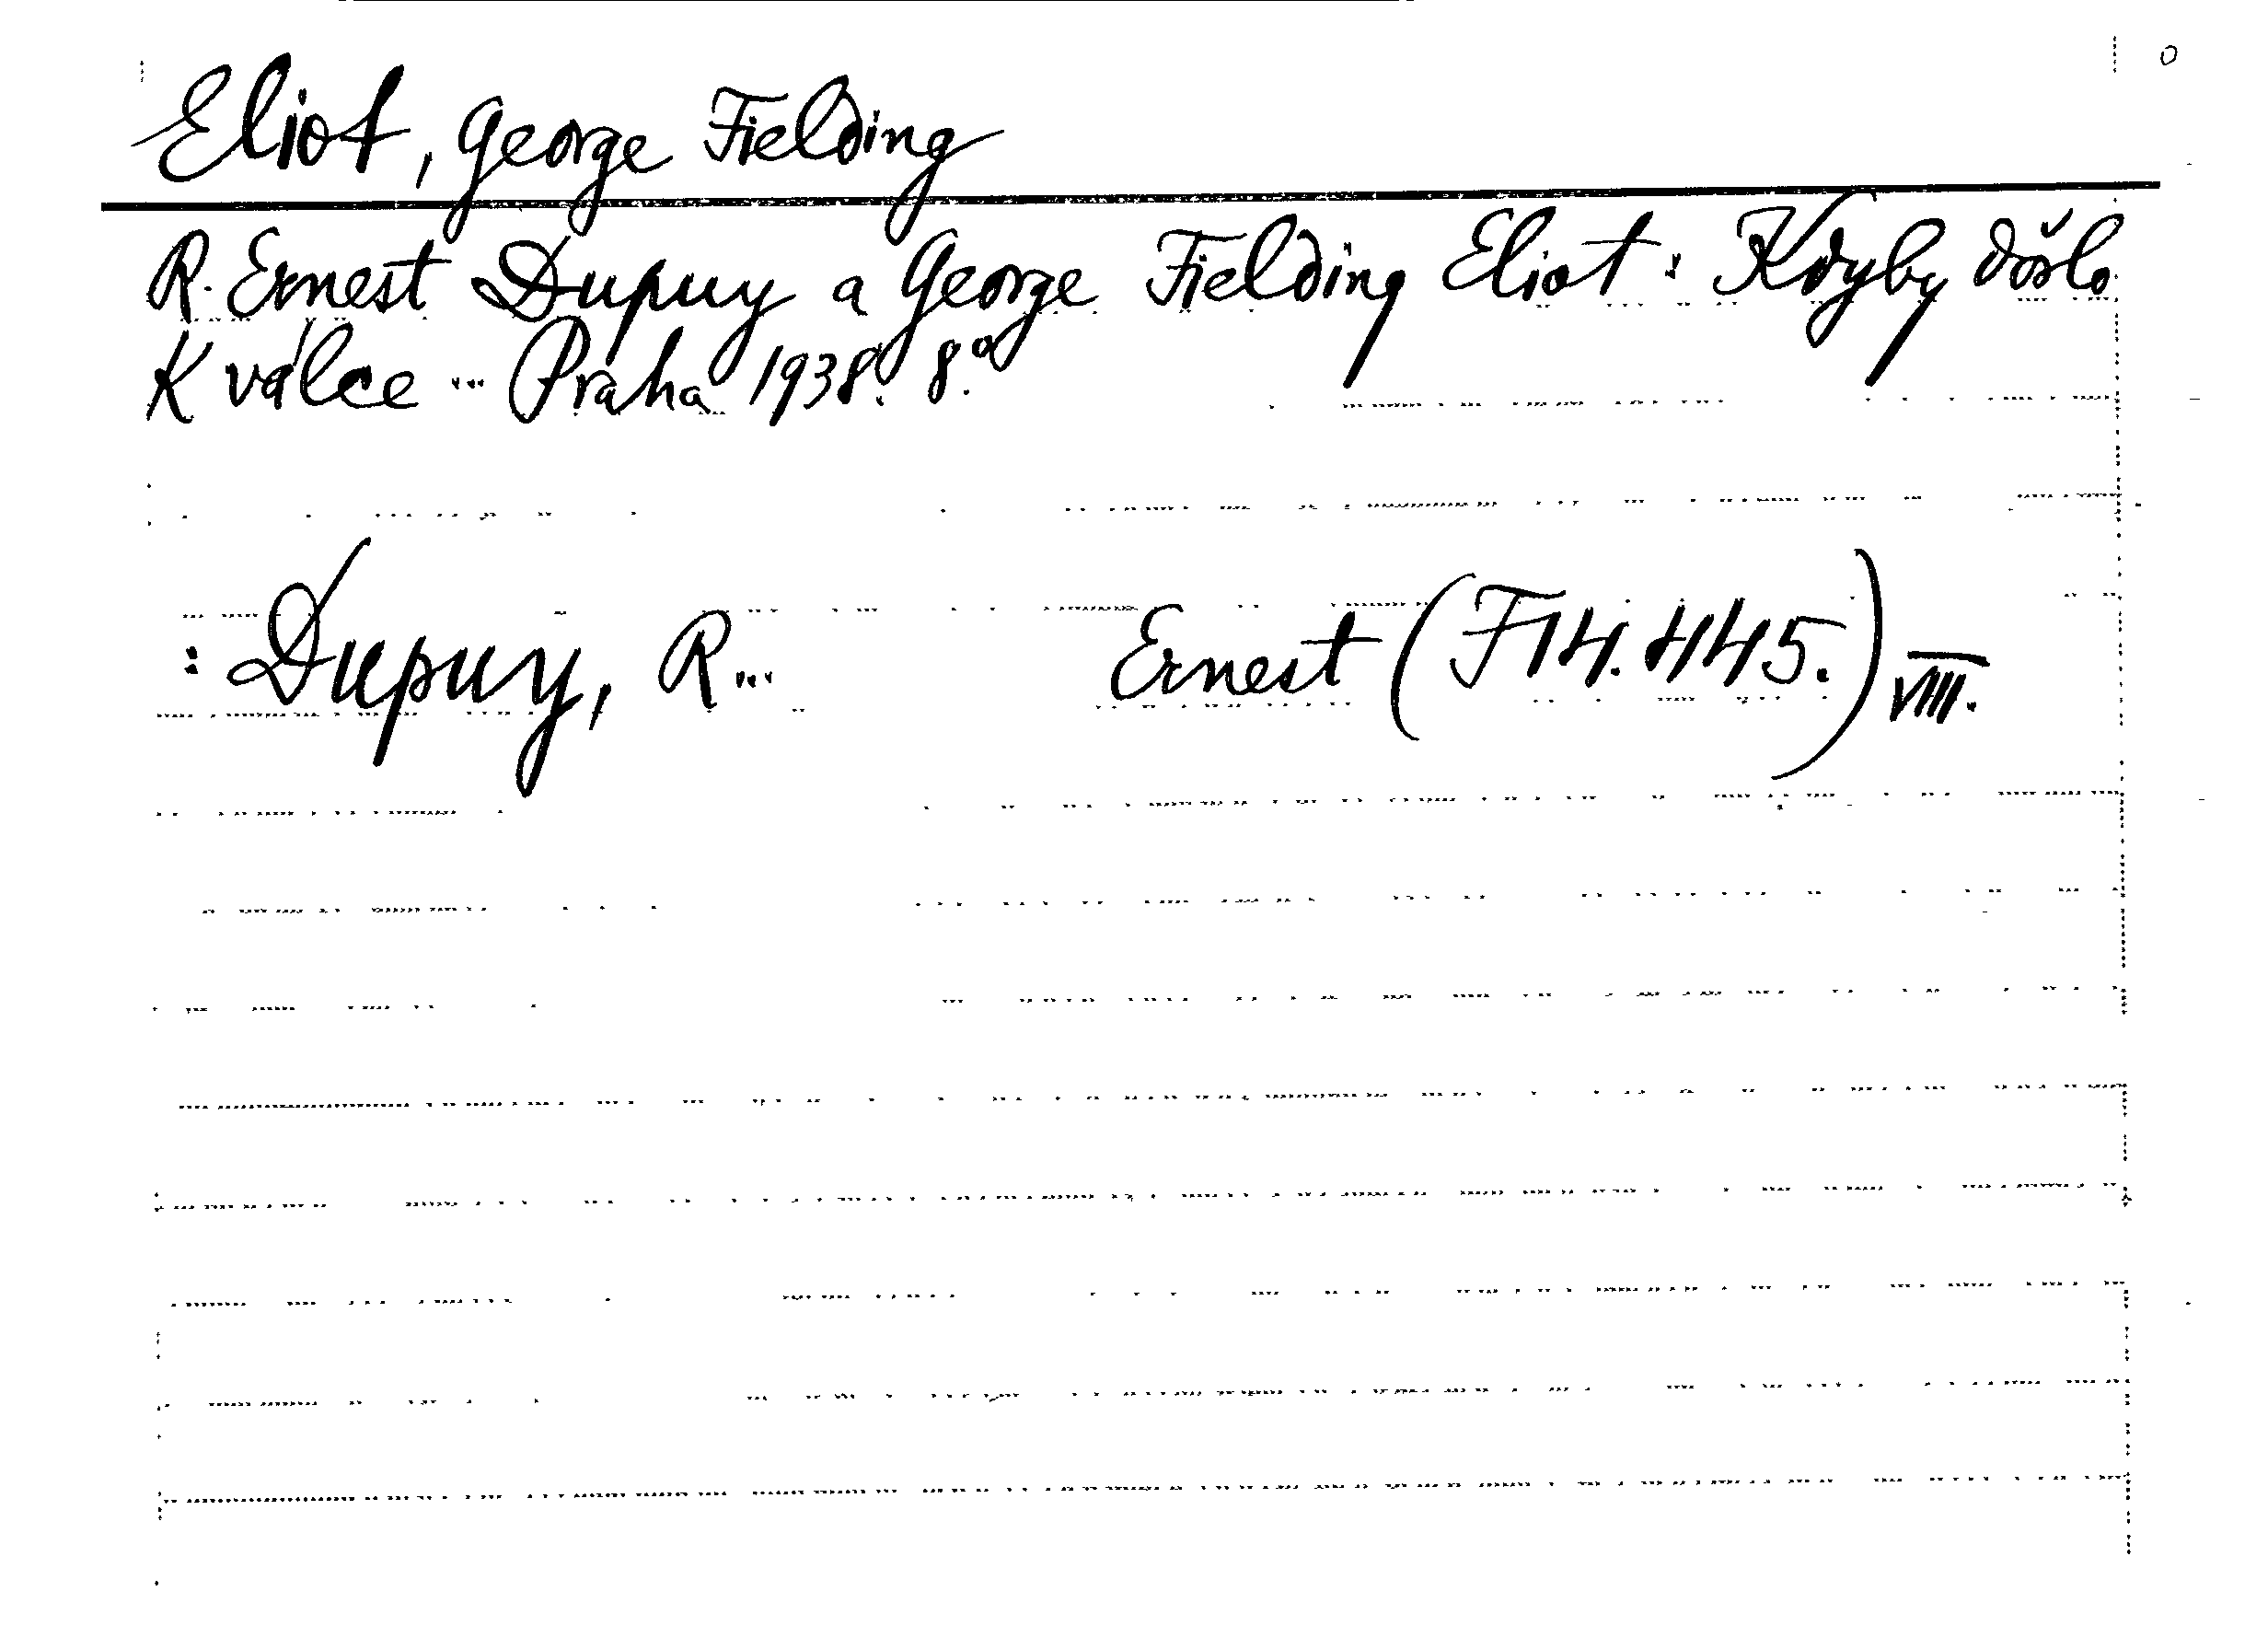 Eliot, George Fielding
R. Ernest Dupuy a George Fielding Eliot: Kdyby došlo
k válce ... Praha 1938. 8.°
: Dupuy, R... Ernest (F 14.445.) VIII.